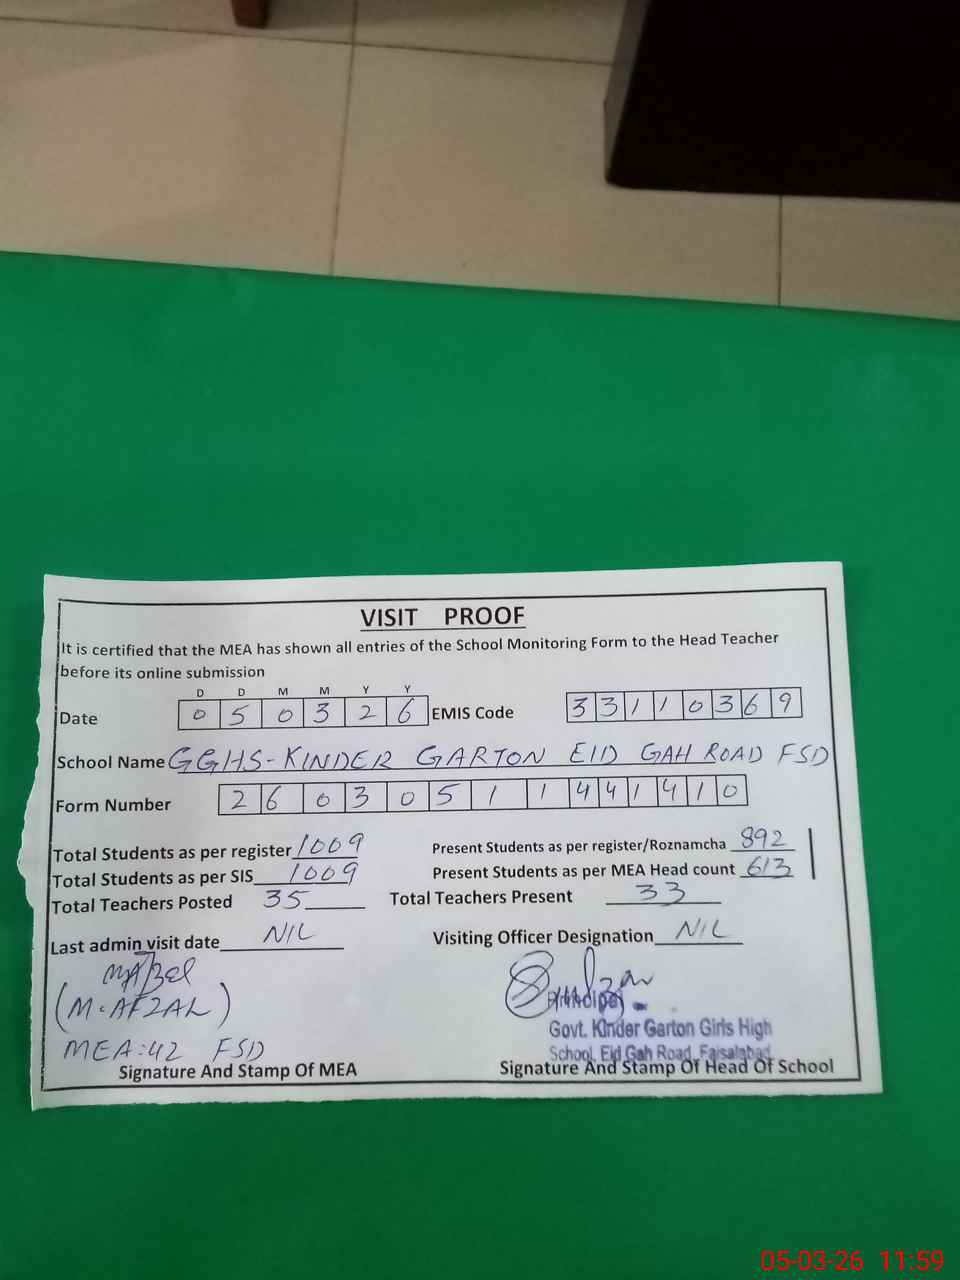 VISIT PROOF
It is certified that the MEA has shown all entries of the School Monitoring Form to the Head Teacher
before its online submission
D D M M Y Y
Date 0 5 0 3 2 6 EMIS Code 3 3 1 1 0 3 6 9
School Name GGHS-KINDER GARTON EID GAH ROAD FSD
Form Number 2 6 0 3 0 5 1 1 4 4 1 4 1 0
Total Students as per register 1009 Present Students as per register/Roznamcha 892
Total Students as per SIS 1009 Present Students as per MEA Head count 613
Total Teachers Posted 35 Total Teachers Present 33
Last admin visit date NIL Visiting Officer Designation NIL
(M.AFZAL) Principal
MEA:42 FSD Govt. Kinder Garton Girls High
School, Eid Gah Road, Faisalabad
Signature And Stamp Of MEA Signature And Stamp Of Head Of School
05-03-26 11:59